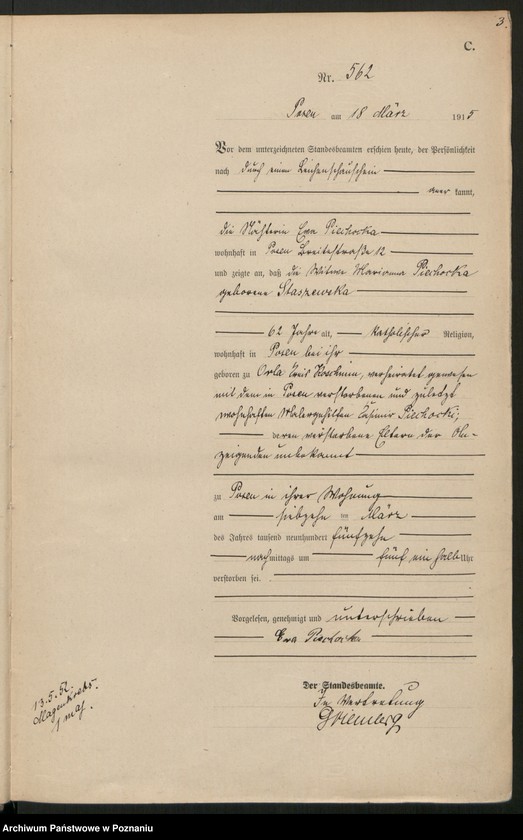 3.
C.
Nr. 562
Posen am 18 März 1915
Vor dem unterzeichneten Standesbeamten erschien heute, der Persönlichkeit
nach durch einen Leichenschauschein
kannt,
die Nähterin Ewa Piechocka
wohnhaft in Posen Breitestraße 12
und zeigte an, daß die Witwe Marianna Piechocka
geborene Staszewska
62 Jahre alt, katholischer Religion,
wohnhaft in Posen bei ihr
geboren zu Orla Kreis Koschmin, verheiratet gewesen
mit dem in Posen verstorbenen und zuletzt
wohnhaften Malergehilfen Casimir Piechocki;
deren verstorbene Eltern der An-
zeigenden unbekannt
zu Posen in ihrer Wohnung
am siebzehn ten März
des Jahres tausend neunhundert fünfzehn
nachmittags um fünf ein halb Uhr
verstorben sei.
Vorgelesen, genehmigt und unterschrieben
Ewa Piechocka
Der Standesbeamte.
In Vertretung
13.5.52
Magenkrebs.
1 maj.
Archiwum Państwowe w Poznaniu